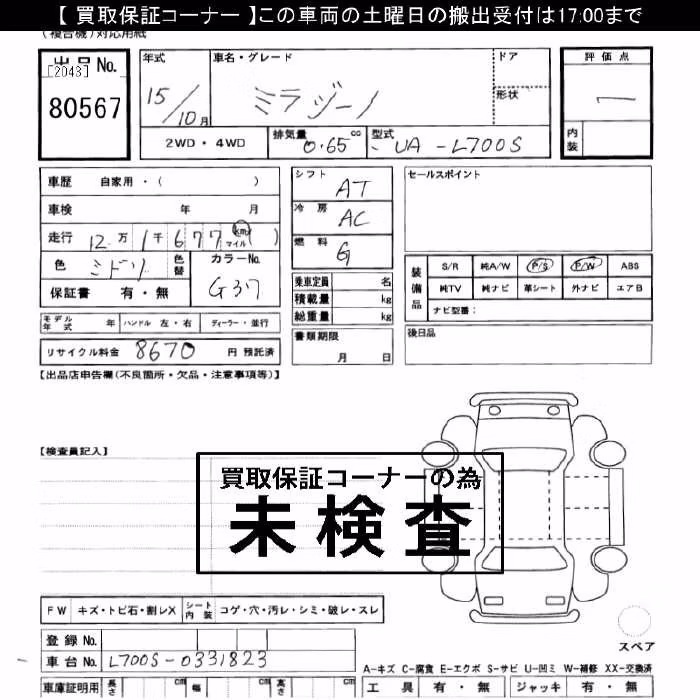 【 買取保証コーナー 】この車両の土曜日の搬出受付は17:00まで
(複合機)対応用紙
出品No.
[2043]
80567
年式
15/10月
車名・グレード
ミラジーノ
ドア
形状
評価点
ー
内装
2WD・4WD
排気量 0.65 cc
型式 UA-L700S
車歴 自家用・( )
車検 年 月
走行 12万1千677 km マイル ( )
色 ミドリ 色替
カラーNo. G37
保証書 有・無
シフト AT
冷房 AC
燃料 G
乗車定員 名
積載量 kg
総重量 kg
書類期限 月 日
セールスポイント
装備品
S/R 純A/W P/S P/W ABS
純TV 純ナビ 革シート 外ナビ エアB
ナビ型番:
後日品
モデル年式 年 ハンドル 左・右 ディーラー・並行
リサイクル料金 8670 円 預託済
【出品店申告欄(不良箇所・欠品・注意事項等)】
【検査員記入】
買取保証コーナーの為
未検査
FW キズ・トビ石・割レX シート内装 コゲ・穴・汚レ・シミ・破レ・スレ
スペア
登録No.
車台No. L700S-0331823
A-キズ C-腐食 E-エクボ S-サビ U-凹ミ W-補修 XX-交換済
車庫証明用 長さ cm 幅 cm 高さ cm
工具 有・無 ジャッキ 有・無